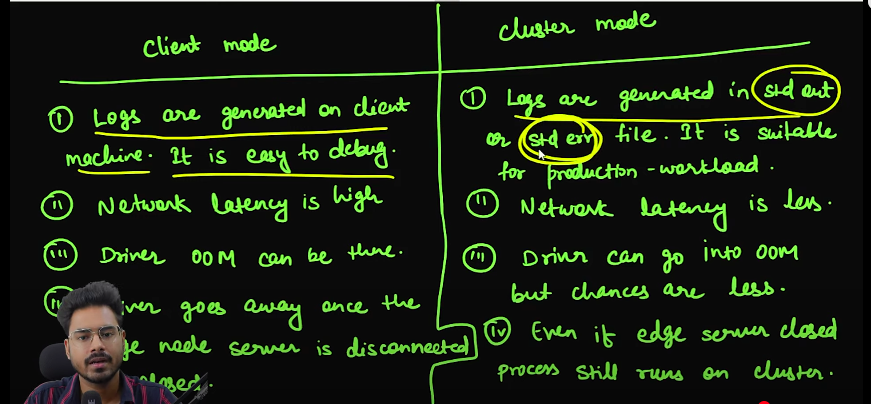 Client mode
Cluster mode
(i) Logs are generated on client
machine. It is easy to debug.
(ii) Network latency is high
(iii) Driver OOM can be there.
goes away once the
node server is disconnected
(i) Logs are generated in std out
or std err file. It is suitable
for production-workload.
(ii) Network latency is less.
(iii) Driver can go into OOM
but chances are less.
(iv) Even if edge server closed
process still runs on cluster.